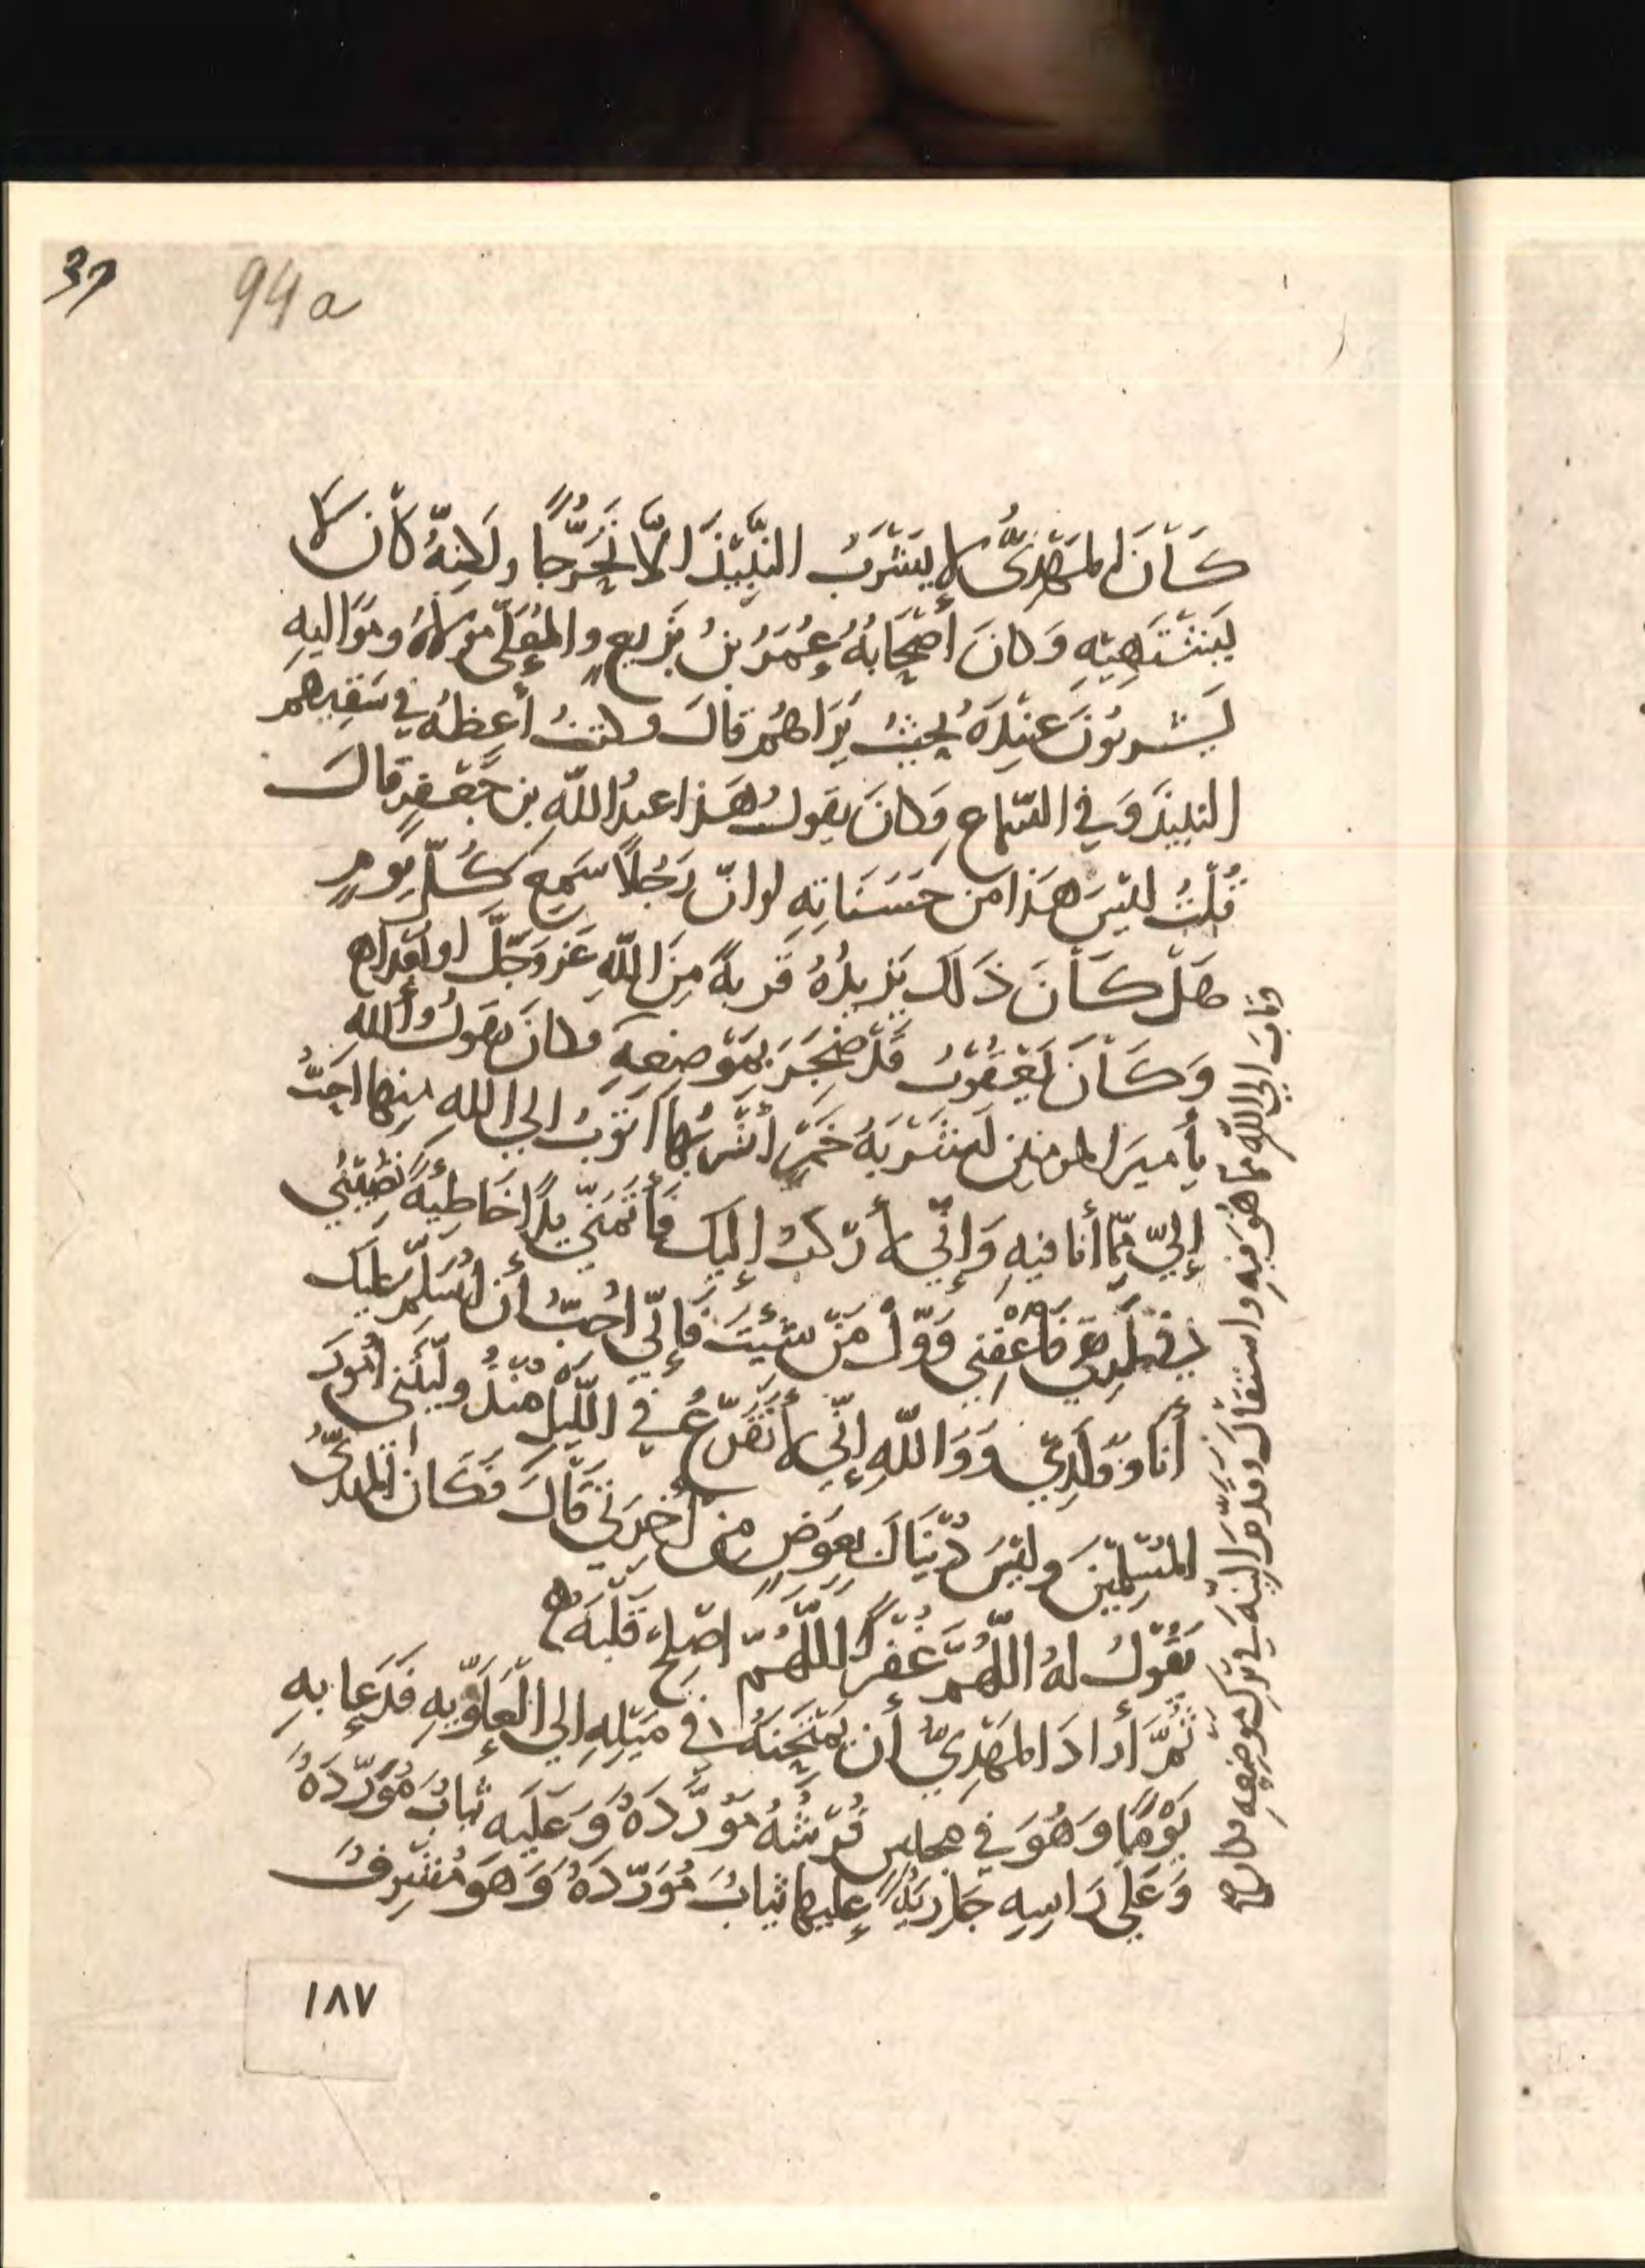 37
94a
كَانَ المَهْدِيُّ لا يَشْرَبُ النَّبِيْذَ الَّا تَحَرُّجًا ولَكِنَّهُ كانَ لا
يَشْتَهِيْهِ وَكانَ أَصْحَابُهُ عُمَرُ بنُ بَزِيعٍ والمُعَلَّى مَولاهُ ومَوَاليهِ
يَشربُونَ عِنْدَهُ بحيثُ يَرَاهُمْ قالَ وكنتُ أعِظُهُ في سَقيِهم
النبيذَ وَفي السّماعِ وَكانَ يقولُ هَذا عبدُ اللّهِ بن جَعْفَرٍ قالَ
قُلْتُ ليْسَ هَذا من حَسَنَاتِهِ لو انّ رَجُلًا سَمِعَ كُلَّ يومٍ
هَلْ كَانَ ذَلكَ يَزِيدُهُ قُربةً مِنَ اللّهِ عَز وَجَلَّ او
وَكَانَ يَعْقُوبُ قَدْ ضَجِرَ بِمَوْضِعِهِ وكانَ يقولُ واللهِ
يا أميرَ المومنين لَشَرْبَةُ خَمْرٍ أشْرَبُها اتوبُ الى اللهِ منها احَبُّ
إليّ مِمّا أنا فيهِ وَإنّي لأرْكبُ إليك فأتَمَنّى يدًا خَاطِيَةً تُصِيْبُنِي
في طَرِيْقي فأعْفِنِي وَوَلِّ مَنْ شِئْتَ فَإنّي أحِبُّ أن اُسَلِّمَ عليك
أنا وَوَلَدِي وَوَاللّهِ إنّي لأتَفَزّعُ في اللّيْلِ مُنْذُ ولّيْتَني أمُورَ
المُسْلِمِيْنَ وليْسَ دُنْيَاكَ بِعِوَضٍ مِن آخِرَتي قَالَ فَكَانَ المَهديُّ
يَقُولُ لهُ اللّهُمَّ غَفْرًا اللّهُمَّ اصْلِحْ قَلْبَهُ
ثُمَّ أرادَ المَهْدِيُّ أن يَمْتَحِنَهُ في مَيْلِهِ إلى العَلَوِيّةِ فَدَعا بهِ
يَوْمًا وَهُوَ في مجلسٍ فُرْشُهُ مُوَرَّدَةٌ وَعَلَيهِ ثيابٌ مُوَرَّدَةٌ
وَعَلى رَاسِهِ جَارِيَةٌ عليها ثيابٌ مُوَرّدَةٌ وَهوَ مُشْرِفٌ
وتابَ الى اللّهِ مما هُوَ فيهِ واستقالَ وقدّمَ النيّةَ في تركِ موضعِهِ
١٨٧